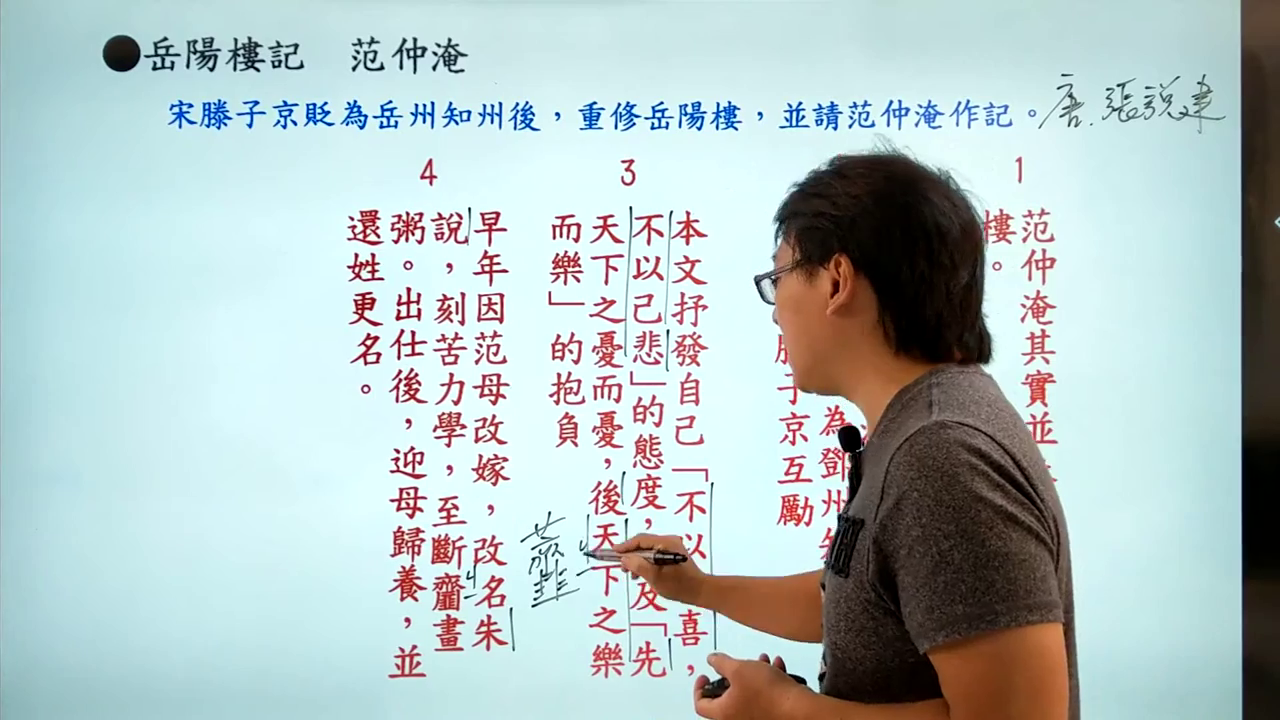 ●岳陽樓記 范仲淹
宋滕子京貶為岳州知州後，重修岳陽樓，並請范仲淹作記。
唐.張說建
1
范仲淹其實並
樓。
為鄧州
子京互勵
3
本文抒發自己「不以 喜，
不以己悲」的態度， 及「先
天下之憂而憂，後天下之樂
而樂」的抱負
4
早年因范母改嫁，改名朱
說，刻苦力學，至斷齏畫
粥。出仕後，迎母歸養，並
還姓更名。